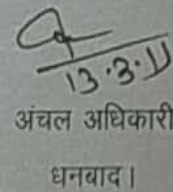 13.3.11
अंचल अधिकारी
धनबाद।